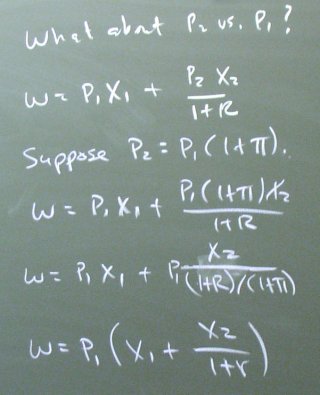 What about P₂ vs. P₁?
W = P₁X₁ + P₂X₂/1+R
Suppose P₂ = P₁(1+π).
W = P₁X₁ + P₁(1+π)X₂/1+R
W = P₁X₁ + P₁ X₂/(1+R)/(1+π)
W = P₁(X₁ + X₂/1+r)